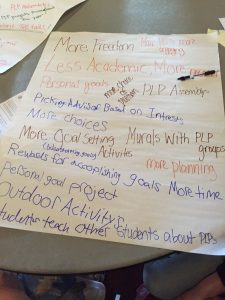 More Freedom
Less Academic, More
Personal goals
PLP Assembly
Picking Advisor Based on Interests
More choices
More Goal Setting
Activites
Murals With PLP groups
more planning
Rewards for accomplishing goals
More time
Personal goal project
Outdoor Activity's
Students teach other students about PLPs